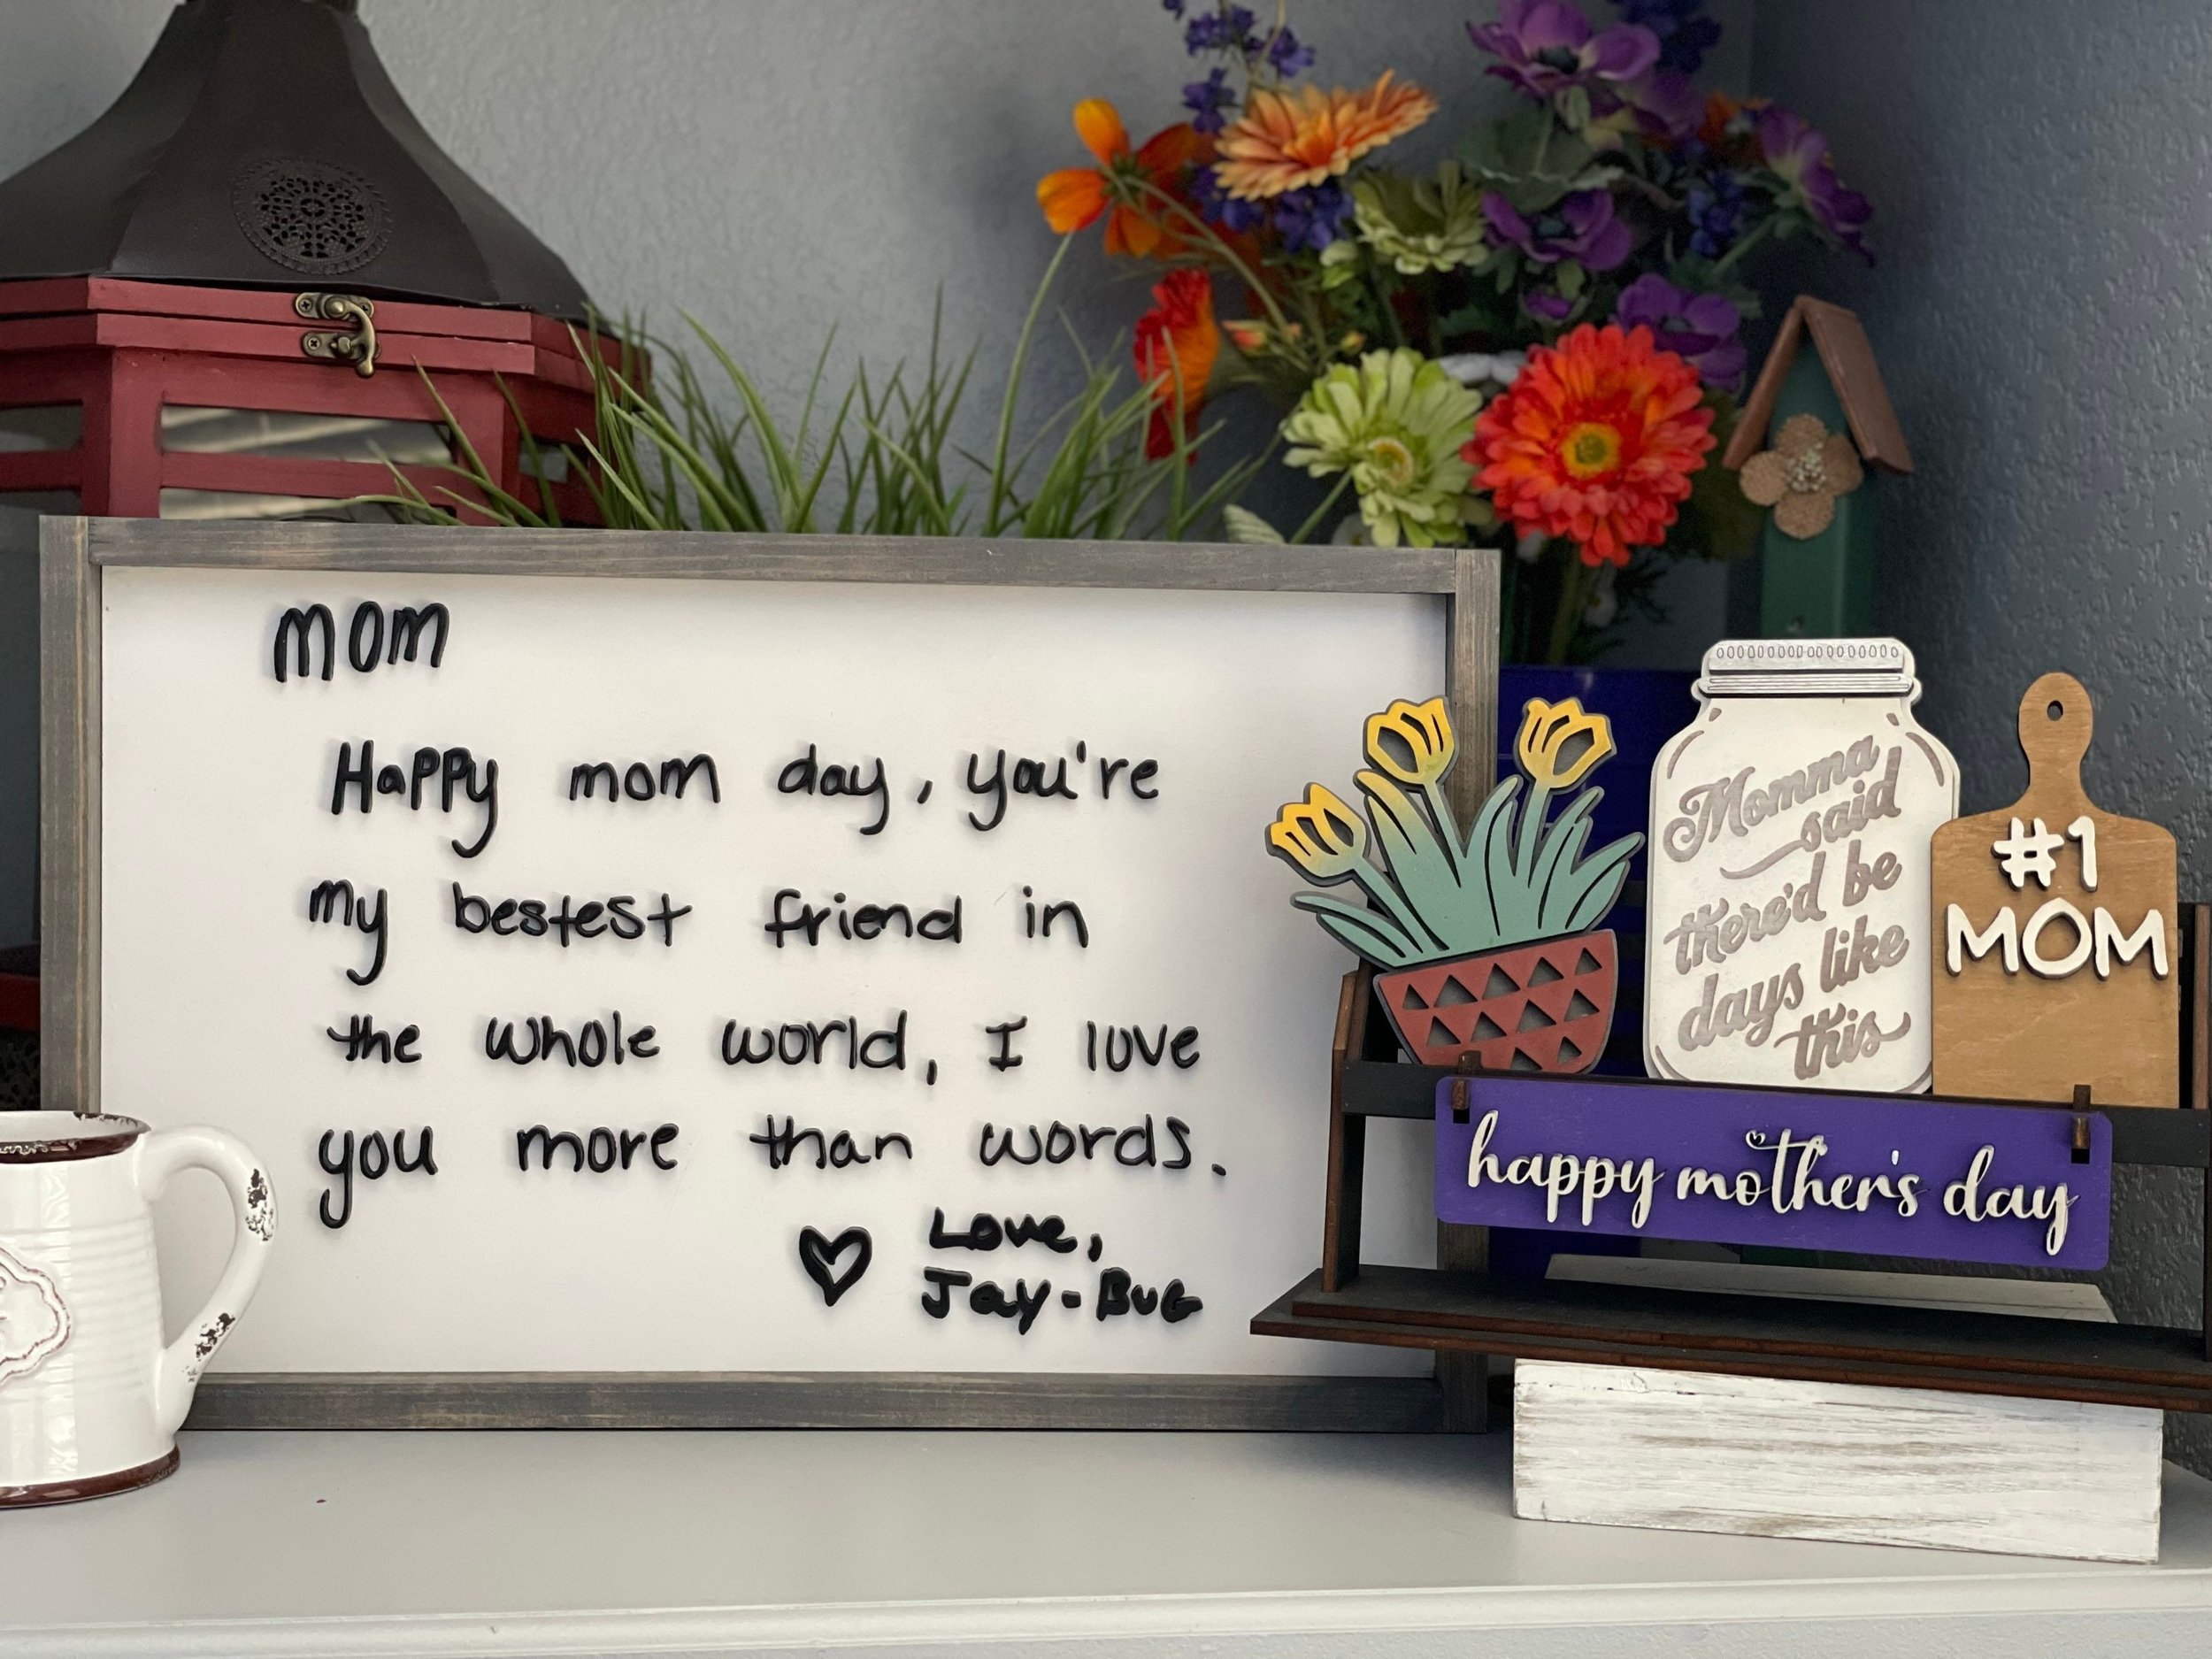 mom
Happy mom day, you're
my bestest friend in
the whole world, I love
you more than words.
Love,
Jay-Bug
Momma
said
there'd be
days like
this
#1
MOM
happy mother's day